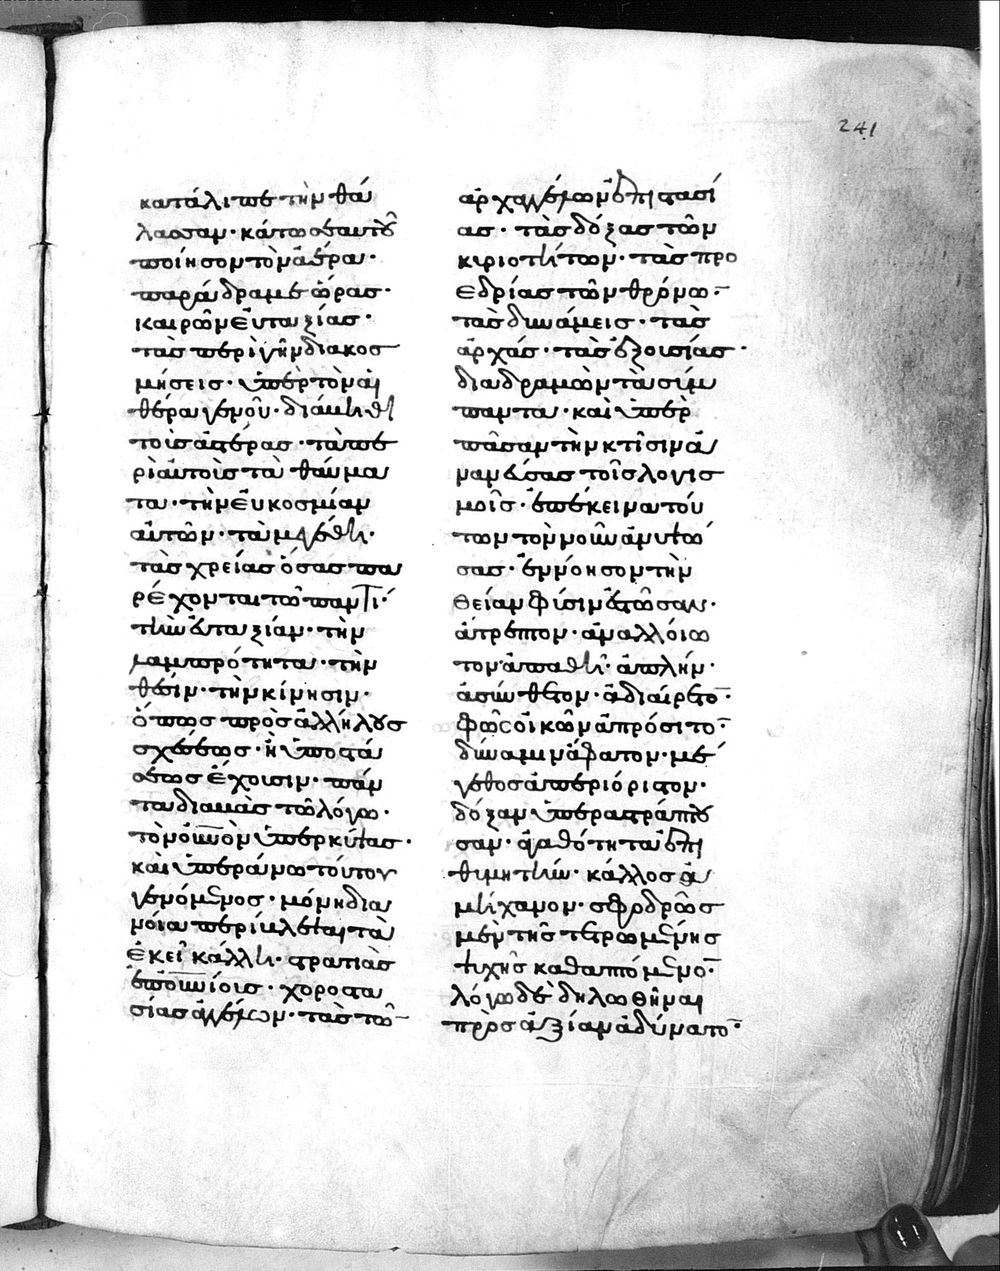 241
κατάλιπε τὴν θά
λασσαν· κάτω σεαυτοῦ
ποίησον τὸν ἀέρα·
παράδραμε ὥρας·
καιρῶν ἐυταξίας·
τὰς περὶ γῆν διακοσ
μήσεις· ὑπὲρ τὸν αἰ
θέρα γενοῦ· διάμηθι
τοὺς ἀστέρας· τὰ πε
ρὶ αὐτοὺς τὰ θαύμα
τα· τὴν ἐυκοσμίαν
αὐτῶν· τὰ μεγέθη·
τὰς χρείας ὅσας πα
ρέχονται τῶ παντί·
τὴν ἐυταξίαν· τὴν
λαμπρότητα· τὴν
θέσιν· τὴν κίνησιν·
ὅπως πρὸς ἀλλήλους
σχέσεως· ἢ ὑποστά
σεως ἔχουσιν· πάν
τα διαβὰς τῶ λόγω·
τὸν οὐνὸν ὑπερκύψας·
καὶ ὑπεράνω τούτου
γενόμενος· μόνη δια
νοία περίβλεψαι τὰ
ἐκεῖ κάλλη· στρατιὰς
ἐπουνίους· χοροστα
σίας ἀγγέλων· τὰς τῶν
ἀρχαγγέλων ἐπιστασί
ας· τὰς δόξας τῶν
κυριοτήτων· τὰς προ
εδρίας τῶν θρόνων·
τὰς δυνάμεις· τὰς
ἀρχάς· τὰς ἐξουσίας·
διαδραμὼν τὰ σύμ
παντα· καὶ ὑπὲρ
πᾶσαν τὴν κτίσιν ἀ
ναγαγὼν τοῖς λογισ
μοῖς· ἐπέκεινα τού
των τὸν νοῦν ἀνυψώ
σας· ἐννόησον τὴν
θείαν φύσιν ἑστῶσαν·
ἄτρεπτον· ἀναλλοίω
τον· ἀπαθῆ· ἁπλῆν·
ἀσύνθετον· ἀδιαίρετον·
φῶς οἰκῶν ἀπρόσιτον·
δύναμιν ἄφατον· μέ
γεθος ἀπεριόριστον·
δόξαν ὑπεραστράπτου
σαν· ἀγαθότητα ἐπι
θυμητὴν· κάλλος ἀ
μήχανον· σφοδρῶς
μὲν τῆς τετρωμένης
ψυχῆς καθαπτόμενον·
λόγω δὲ δηλωθῆναι
πρὸς ἀξίαν ἀδύνατον·